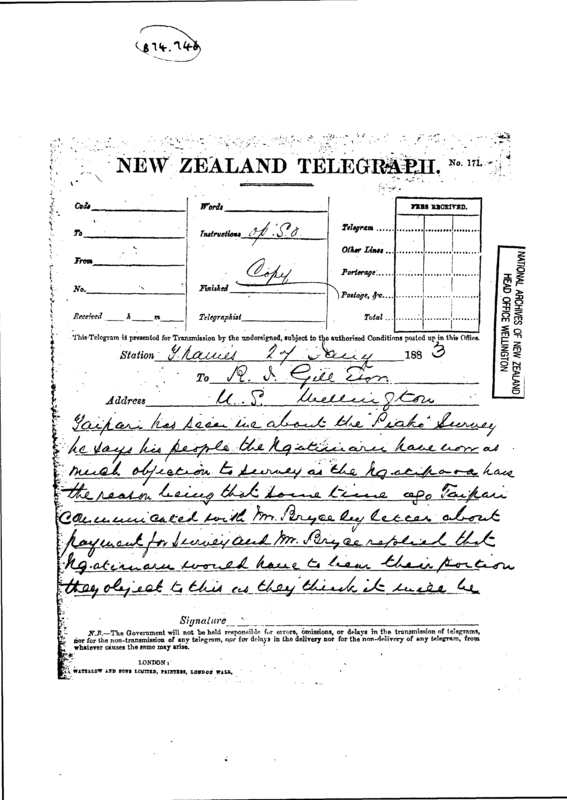 874.746
NEW ZEALAND TELEGRAPH. No. 171.
Code
To
From
No.
Received h m
Words
Instructions op. S.O
Copy
Finished
Telegraphist
FEES RECEIVED.
Telegram
Other Lines
Porterage
Postage, &c.
Total
NATIONAL ARCHIVES OF NEW ZEALAND
HEAD OFFICE WELLINGTON
This Telegram is presented for Transmission by the undersigned, subject to the authorized Conditions posted up in this Office.
Station Thames 27 Jany 1883
To R. J. Gill Esqr
Address U.S. Wellington
Taipari has seen me about the "Piako" Survey
he says his people the Ngatimaru have now as
much objection to survey as the Ngatipaoa have
the reason being that some time ago Taipari
communicated with Mr. Bryce by letter about
payment for Survey and Mr. Bryce replied that
Ngatimaru would have to bear their portion
they object to this as they think it will be
Signature
N.B.—The Government will not be held responsible for errors, omissions, or delays in the transmission of telegrams,
nor for the non-transmission of any telegram, nor for delays in the delivery nor for the non-delivery of any telegram, from
whatever causes the same may arise.
LONDON:
WATERLOW AND SONS LIMITED, PRINTERS, LONDON WALL.